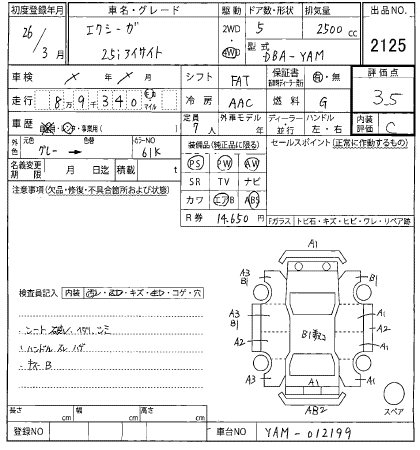 初度登録年月 車名・グレード 駆動 ドア数・形状 排気量 出品NO.
26/3月 エクシーガ 2WD 4WD 5 2500cc 2125
2.5iアイサイト 型式 DBA-YAM
車検 × 年 × 月 シフト FAT 保証書 有・無 評価点
走行 8万9千340 キロ マイル 冷房 AAC 燃料 G 3.5
車歴 定員 7人 外車モデル 年 ディーラー・並行 ハンドル 左・右 内装評価 C
外色 元色 グレー → 色替 カラーNO 61K 装備品(純正品に限る) セールスポイント(正常に作動するもの)
名義変更期限 月 日迄 積載 t PS PW AW
SR TV ナビ
注意事項(欠品・修復・不具合箇所および状態) カワ エアB ABS
R券 14,650円 Fガラス トビ石・キズ・ヒビ・ワレ・リペア跡
A1
A3 B1 B1
検査員記入 内装 汚レ・コゲ・穴
A3 A1
シート ハンドル スレ ハゲ
B1 A2 A2
A1
キズ B
A3 A3 A1 A1
A1
AB2 スペア
長さ cm 幅 cm 高さ cm
登録NO 車台NO YAM-012199